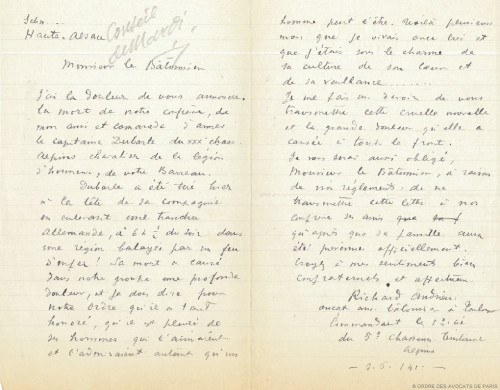 Haute-Alsace
Conseil
de Mardi
Monsieur le Bâtonnier
J'ai la douleur de vous annoncer
la mort de notre confrère, de
mon ami et camarade d'armes
le capitaine Dubarle du chass.
Alpins chevalier de la légion
d'honneur, de votre Barreau.
Dubarle a été tué hier
à la tête de sa compagnie
en enlevant une tranchée
Allemande, à 6 h ½ du soir dans
une région balayée par un feu
d'enfer ! Sa mort a causé
dans notre groupe une profonde
douleur, et je dois dire pour
notre Ordre qu'il a tant
honoré, qu'il est pleuré de
ses hommes qui l'aimaient
et l'admiraient autant qu'un
homme peut l'être. Voilà plusieurs
mois que je vivais avec lui et
que j'étais sous le charme de
sa culture de son cœur et
de sa vaillance........
Je me fais un devoir de vous
transmettre cette cruelle nouvelle
et la grande douleur qu'elle a
causée à tout le front.
Je vous serai aussi obligé,
Monsieur le Bâtonnier, à raison
de nos règlements, de ne
transmettre cette lettre à nos
confrères ses amis que
qu'après que sa famille aura
été prévenue officiellement.
Croyez à mes sentiments bien
confraternels et affectueux.
Richard Andrieu
avocat anc. bâtonnier à Toulon
Commandant la
du 5e Chasseurs
Alpins
© ORDRE DES AVOCATS DE PARIS